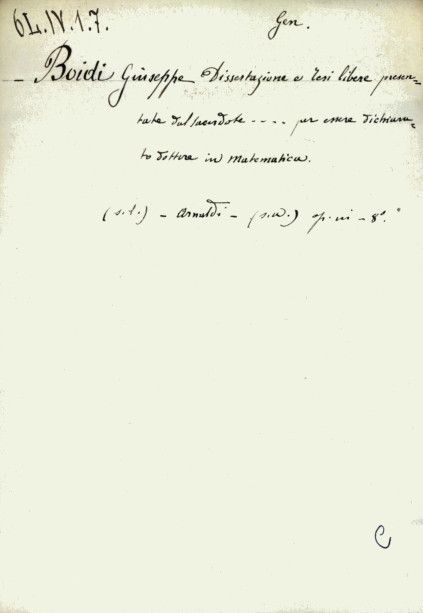 6L.IV.1.7.
Gen.
— Boidi Giuseppe Dissertazione e Tesi libere presen=
tate dal sacerdote .... per essere dichiara=
to dottore in Matematica.
(s.l.) — Arnaldi — (s.a.) op. in — 8°.
C